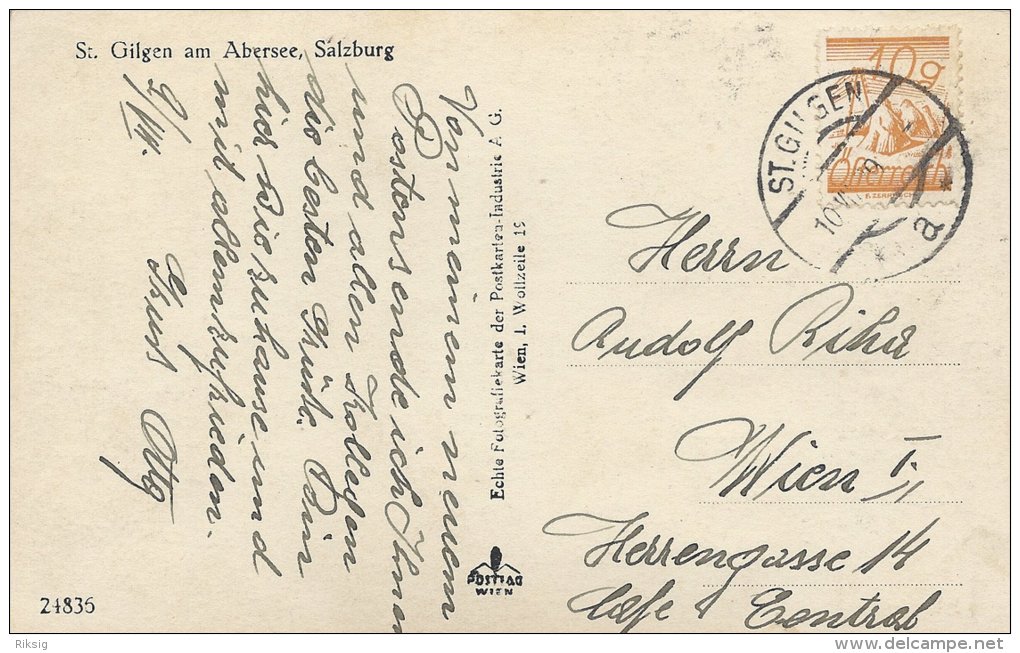 St. Gilgen am Abersee, Salzburg
9/VII.
Von meinem neuem
Postom sende ich Ihnen
und allen Kollegen
die besten Grüße. Bin
hier wie zuhause und
mit allem zufrieden.
Gruss Otto
Echte Fotografiekarte der Postkarten-Industrie A. G.
Wien, I. Wollzeile 19
POSTIAG
WIEN
24836
10g
Österreich
ST. GILGEN
a
Herrn
Rudolf Riha
Wien I,
Herrengasse 14
Cafe Central
Riksig
delcampe.net